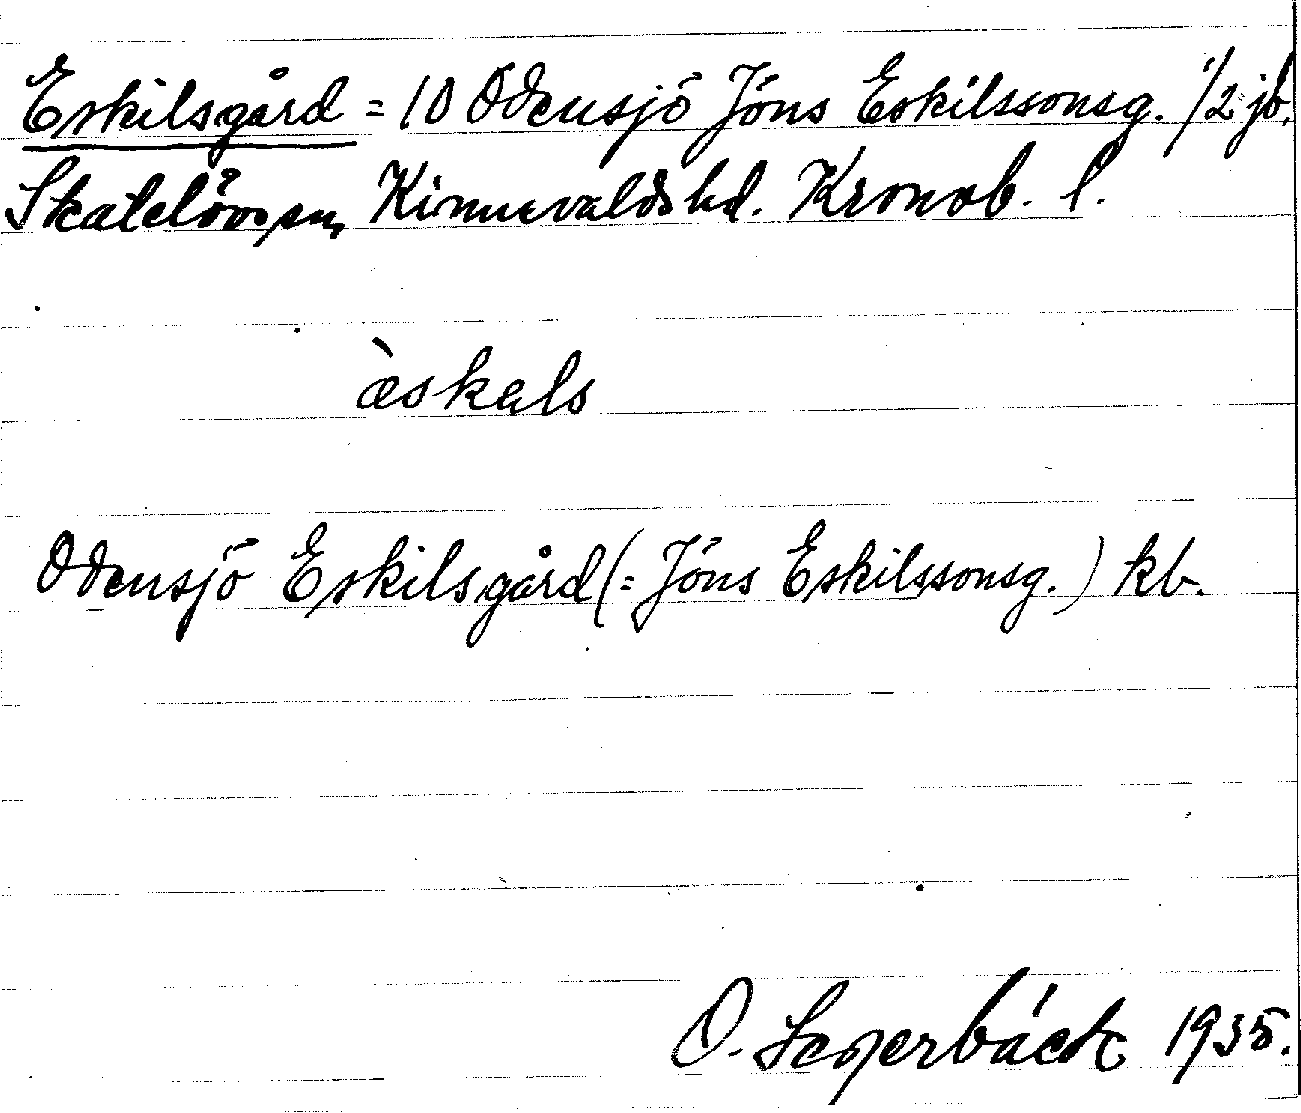 Eskilsgård = 10 Odensjö Jöns Eskilssonsg. 1/2 jb.
Skatelövs sn, Kinnevalds hd. Kronob. l.
æ̀skəls
Odensjö Eskilsgård (= Jöns Eskilssonsg.) kb.
O. Segerbäck 1935.